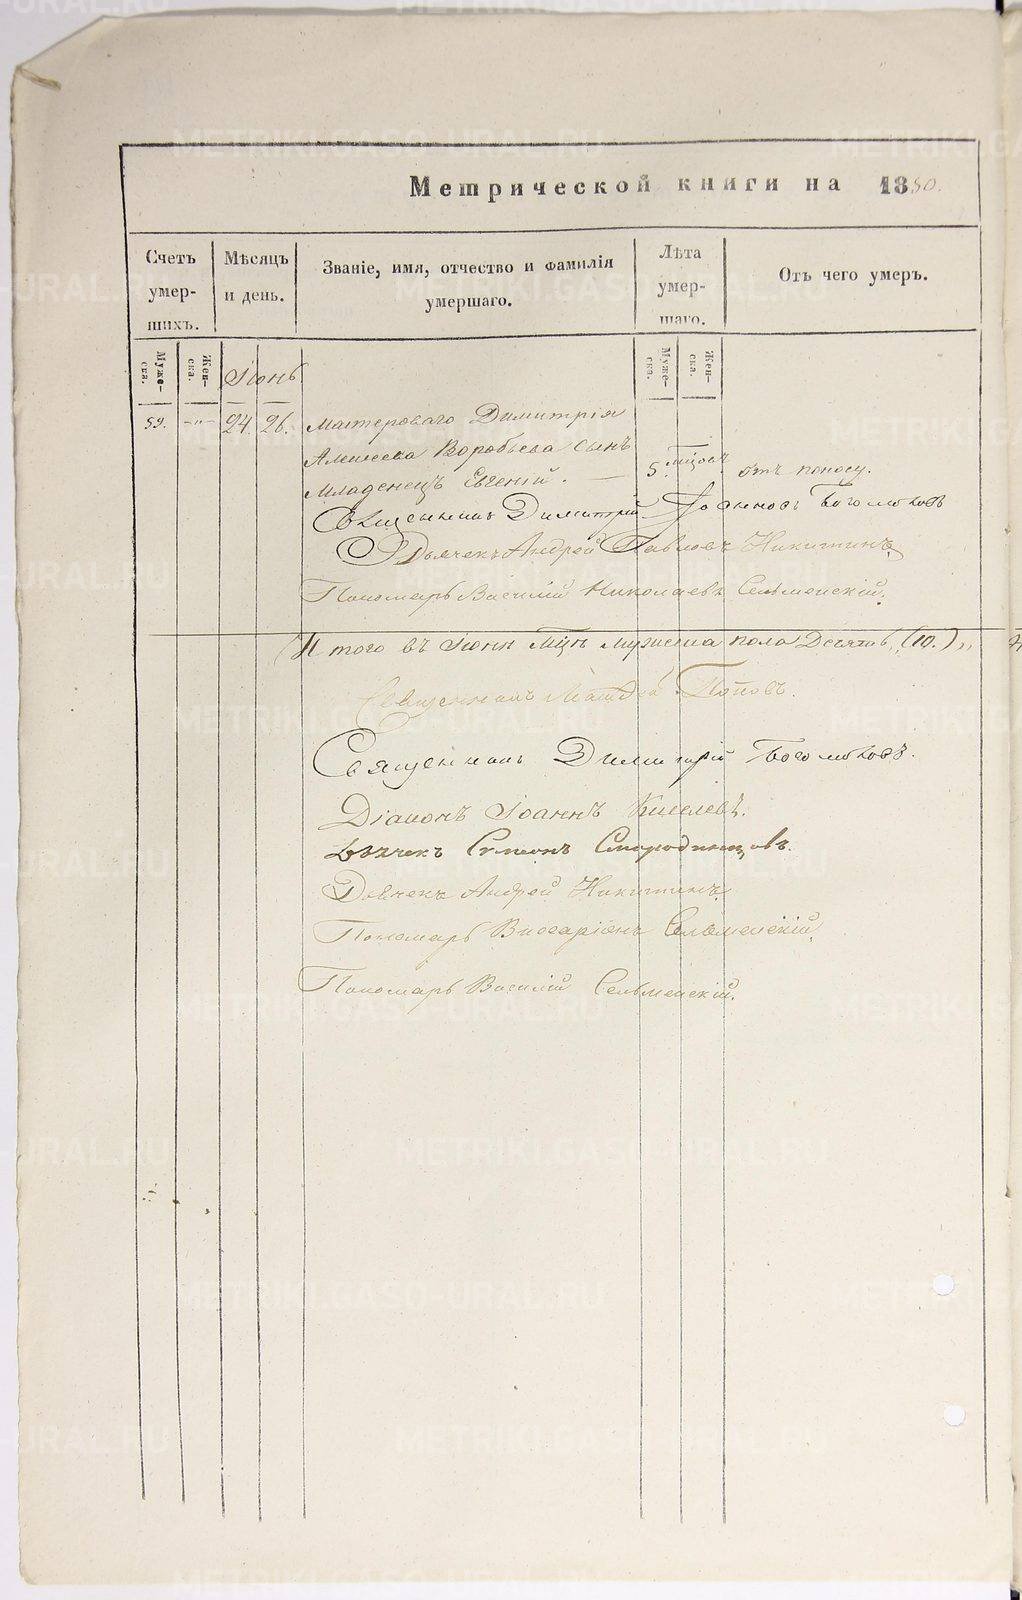 Метрической книги на 1850.
Счетъ умер-шихъ.
Мѣсяцъ и день.
Званіе, имя, отчество и фамилія умершаго.
Лѣта умер-шаго.
Отъ чего умеръ.
Муже-ска.
Жен-ска.
Іюнь
Муже-ска.
Жен-ска.
59. -"- 24. 26. Мастероваго Димитрія
Алексеева Воробьева сынъ
Младенецъ Евгеній. — 5. мцовъ отъ поносу.
Священникъ Димитрій Боголюбовъ
Дьячекъ Андрей Павловъ Никитинъ
Пономарь Василій Николаевъ Сельменскій.
Итого въ Іюнѣ мцѣ мужеска пола Десять (10.)
Священникъ Матфей Поповъ.
Священникъ Димитрій Боголюбовъ.
Діаконъ Іоаннъ Киселевъ.
Дьячекъ Симеонъ Смородинцовъ.
Дьячекъ Андрей Никитинъ
Пономарь Виссаріонъ Сельменскій.
Пономарь Василій Сельменскій.
METRIKI.GASO-URAL.RU